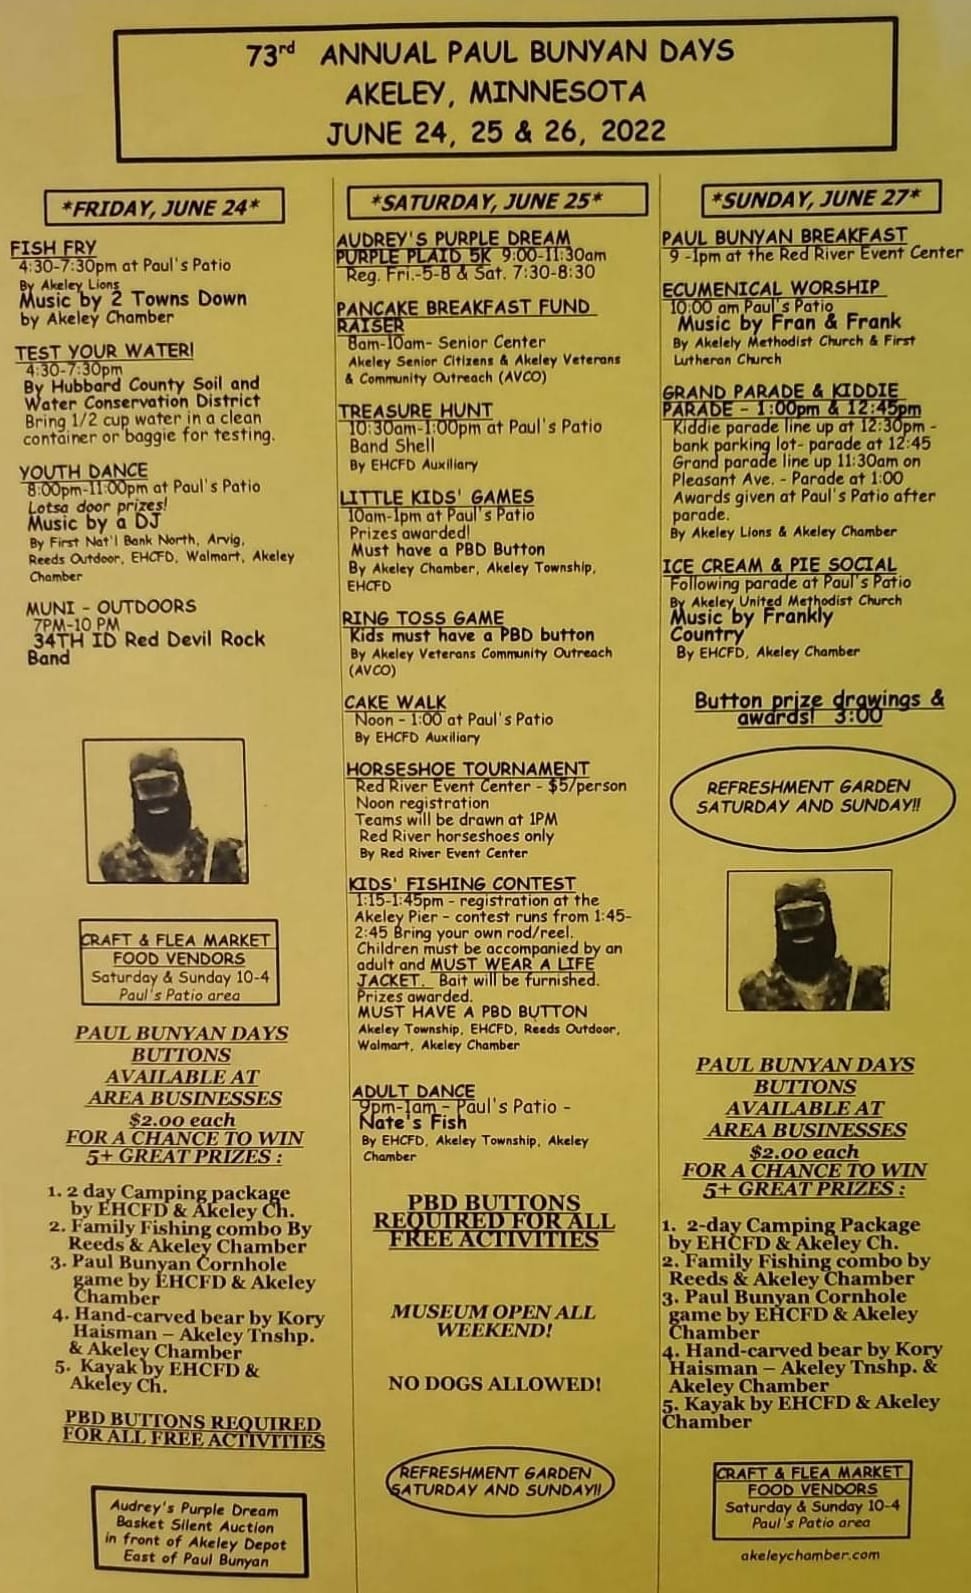 73rd ANNUAL PAUL BUNYAN DAYS
AKELEY, MINNESOTA
JUNE 24, 25 & 26, 2022
*FRIDAY, JUNE 24*
FISH FRY
4:30-7:30pm at Paul's Patio
By Akeley Lions
Music by 2 Towns Down
by Akeley Chamber
TEST YOUR WATER!
4:30-7:30pm
By Hubbard County Soil and
Water Conservation District
Bring 1/2 cup water in a clean
container or baggie for testing.
YOUTH DANCE
8:00pm-11:00pm at Paul's Patio
Lotsa door prizes!
Music by a DJ
By First Nat'l Bank North, Arvig,
Reeds Outdoor, EHCFD, Walmart, Akeley
Chamber
MUNI - OUTDOORS
7PM-10 PM
34TH ID Red Devil Rock
Band
CRAFT & FLEA MARKET
FOOD VENDORS
Saturday & Sunday 10-4
Paul's Patio area
PAUL BUNYAN DAYS
BUTTONS
AVAILABLE AT
AREA BUSINESSES
$2.00 each
FOR A CHANCE TO WIN
5+ GREAT PRIZES :
1. 2 day Camping package
by EHCFD & Akeley Ch.
2. Family Fishing combo By
Reeds & Akeley Chamber
3. Paul Bunyan Cornhole
game by EHCFD & Akeley
Chamber
4. Hand-carved bear by Kory
Haisman – Akeley Tnshp.
& Akeley Chamber
5. Kayak by EHCFD &
Akeley Ch.
PBD BUTTONS REQUIRED
FOR ALL FREE ACTIVITIES
Audrey's Purple Dream
Basket Silent Auction
in front of Akeley Depot
East of Paul Bunyan
*SATURDAY, JUNE 25*
AUDREY'S PURPLE DREAM
PURPLE PLAID 5K 9:00-11:30am
Reg. Fri.-5-8 & Sat. 7:30-8:30
PANCAKE BREAKFAST FUND
RAISER
8am-10am- Senior Center
Akeley Senior Citizens & Akeley Veterans
& Community Outreach (AVCO)
TREASURE HUNT
10:30am-1:00pm at Paul's Patio
Band Shell
By EHCFD Auxiliary
LITTLE KIDS' GAMES
10am-1pm at Paul's Patio
Prizes awarded!
Must have a PBD Button
By Akeley Chamber, Akeley Township,
EHCFD
RING TOSS GAME
Kids must have a PBD button
By Akeley Veterans Community Outreach
(AVCO)
CAKE WALK
Noon - 1:00 at Paul's Patio
By EHCFD Auxiliary
HORSESHOE TOURNAMENT
Red River Event Center - $5/person
Noon registration
Teams will be drawn at 1PM
Red River horseshoes only
By Red River Event Center
KIDS' FISHING CONTEST
1:15-1:45pm - registration at the
Akeley Pier - contest runs from 1:45-
2:45 Bring your own rod/reel.
Children must be accompanied by an
adult and MUST WEAR A LIFE
JACKET. Bait will be furnished.
Prizes awarded.
MUST HAVE A PBD BUTTON
Akeley Township, EHCFD, Reeds Outdoor,
Walmart, Akeley Chamber
ADULT DANCE
9pm-1am - Paul's Patio -
Nate's Fish
By EHCFD, Akeley Township, Akeley
Chamber
PBD BUTTONS
REQUIRED FOR ALL
FREE ACTIVITIES
MUSEUM OPEN ALL
WEEKEND!
NO DOGS ALLOWED!
REFRESHMENT GARDEN
SATURDAY AND SUNDAY!!
*SUNDAY, JUNE 27*
PAUL BUNYAN BREAKFAST
9 -1pm at the Red River Event Center
ECUMENICAL WORSHIP
10:00 am Paul's Patio
Music by Fran & Frank
By Akelely Methodist Church & First
Lutheran Church
GRAND PARADE & KIDDIE
PARADE - 1:00pm & 12:45pm
Kiddie parade line up at 12:30pm -
bank parking lot- parade at 12:45
Grand parade line up 11:30am on
Pleasant Ave. - Parade at 1:00
Awards given at Paul's Patio after
parade.
By Akeley Lions & Akeley Chamber
ICE CREAM & PIE SOCIAL
Following parade at Paul's Patio
By Akeley United Methodist Church
Music by Frankly
Country
By EHCFD, Akeley Chamber
Button prize drawings &
awards! 3:00
REFRESHMENT GARDEN
SATURDAY AND SUNDAY!!
PAUL BUNYAN DAYS
BUTTONS
AVAILABLE AT
AREA BUSINESSES
$2.00 each
FOR A CHANCE TO WIN
5+ GREAT PRIZES :
1. 2-day Camping Package
by EHCFD & Akeley Ch.
2. Family Fishing combo by
Reeds & Akeley Chamber
3. Paul Bunyan Cornhole
game by EHCFD & Akeley
Chamber
4. Hand-carved bear by Kory
Haisman – Akeley Tnshp. &
Akeley Chamber
5. Kayak by EHCFD & Akeley
Chamber
CRAFT & FLEA MARKET
FOOD VENDORS
Saturday & Sunday 10-4
Paul's Patio area
akeleychamber.com